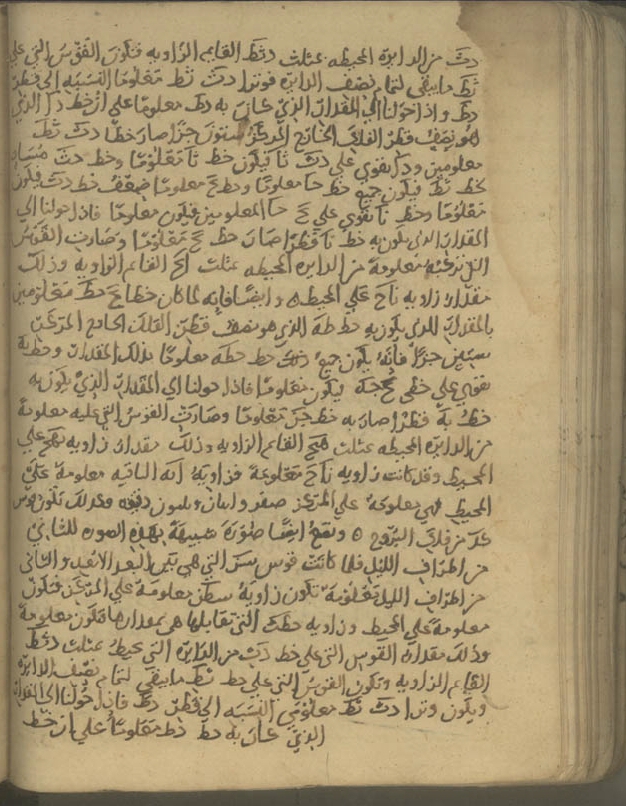 دث من الدايره المحيطه بمثلث دثط القايم الزاويه فتكون القوس التي علي
ثط ما يبقي لتمام نصف الدايره فوترا دث ثط معلوما النسبه الي قطر
دط واذا حولنا الي المقدار الذي كان به دط معلوما علي ان خط دا الذي
هو نصف قطر الفلك الخارج المركز ستون جزا صار خطا دث ثط
معلومين ودا يقوي علي دث ثا فيكون خط ثا معلوما وخط دث مساو
لخط ثط فيكون جميع خط حا معلوما وخط ح معلوما ضعف خط دث فيكون
معلوما وخط ا يقوي علي ح حا المعلومين فيكون معلوما فاذا حولنا الي
المقدار الذي يكون به خط ا قطرا صار خط ح معلوما وصارت القوس
التي معلومة من الدايره المحيطه بمثلث القايم الزاويه وذلك
مقدار زاويه اح علي المحيط ٥ وايضا فانه لما كان خطا ح حط معلومين
بالمقدار الذي يكون به خط طه الذي هو نصف قطر الفلك الخارج المركز
ستين جزا فانه يكون جميع خط حطه معلوما بذلك المقدار وخط ه
يقوي علي خطي ح حه فيكون معلوما فاذا حولنا الي المقدار الذي يكون به
خط ه قطرا صار به خط معلوما وصارت القوس التي عليه معلومة
من الدايره المحيطه بمثلث القايم الزاويه وذلك مقدار زاويه علي
المحيط وقد كانت زاويه اح معلومة فزاويه اه الباقيه معلومة علي
المحيط فهي معلومة علي المركز صفر واثنان وثلثون دقيقه وكذلك تكون قوس
من فلك البروج ٥ ونضع ايضا صورة شبيهة بهذه الصوره للثاني
من اطراف الليل فلما كانت قوس التي هي بين البعد الابعد والثاني
من اطراف الليل معلومة تكون زاوية معلومة علي المركز فتكون
معلومة علي المحيط وزاويه حطث التي تقابلها هي بمقدارها فتكون معلومة
وذلك مقدار القوس التي علي خط دث من الدايره التي تحيط بمثلث دثط
القايم الزاويه وتكون القوس التي علي خط ثط ما يبقي لتمام نصف الدايره
ويكون وترا دث ثط معلومي النسبه الي قطر دط فاذا حولنا الي المقدار
الذي كان به خط دط معلوما علي ان خط